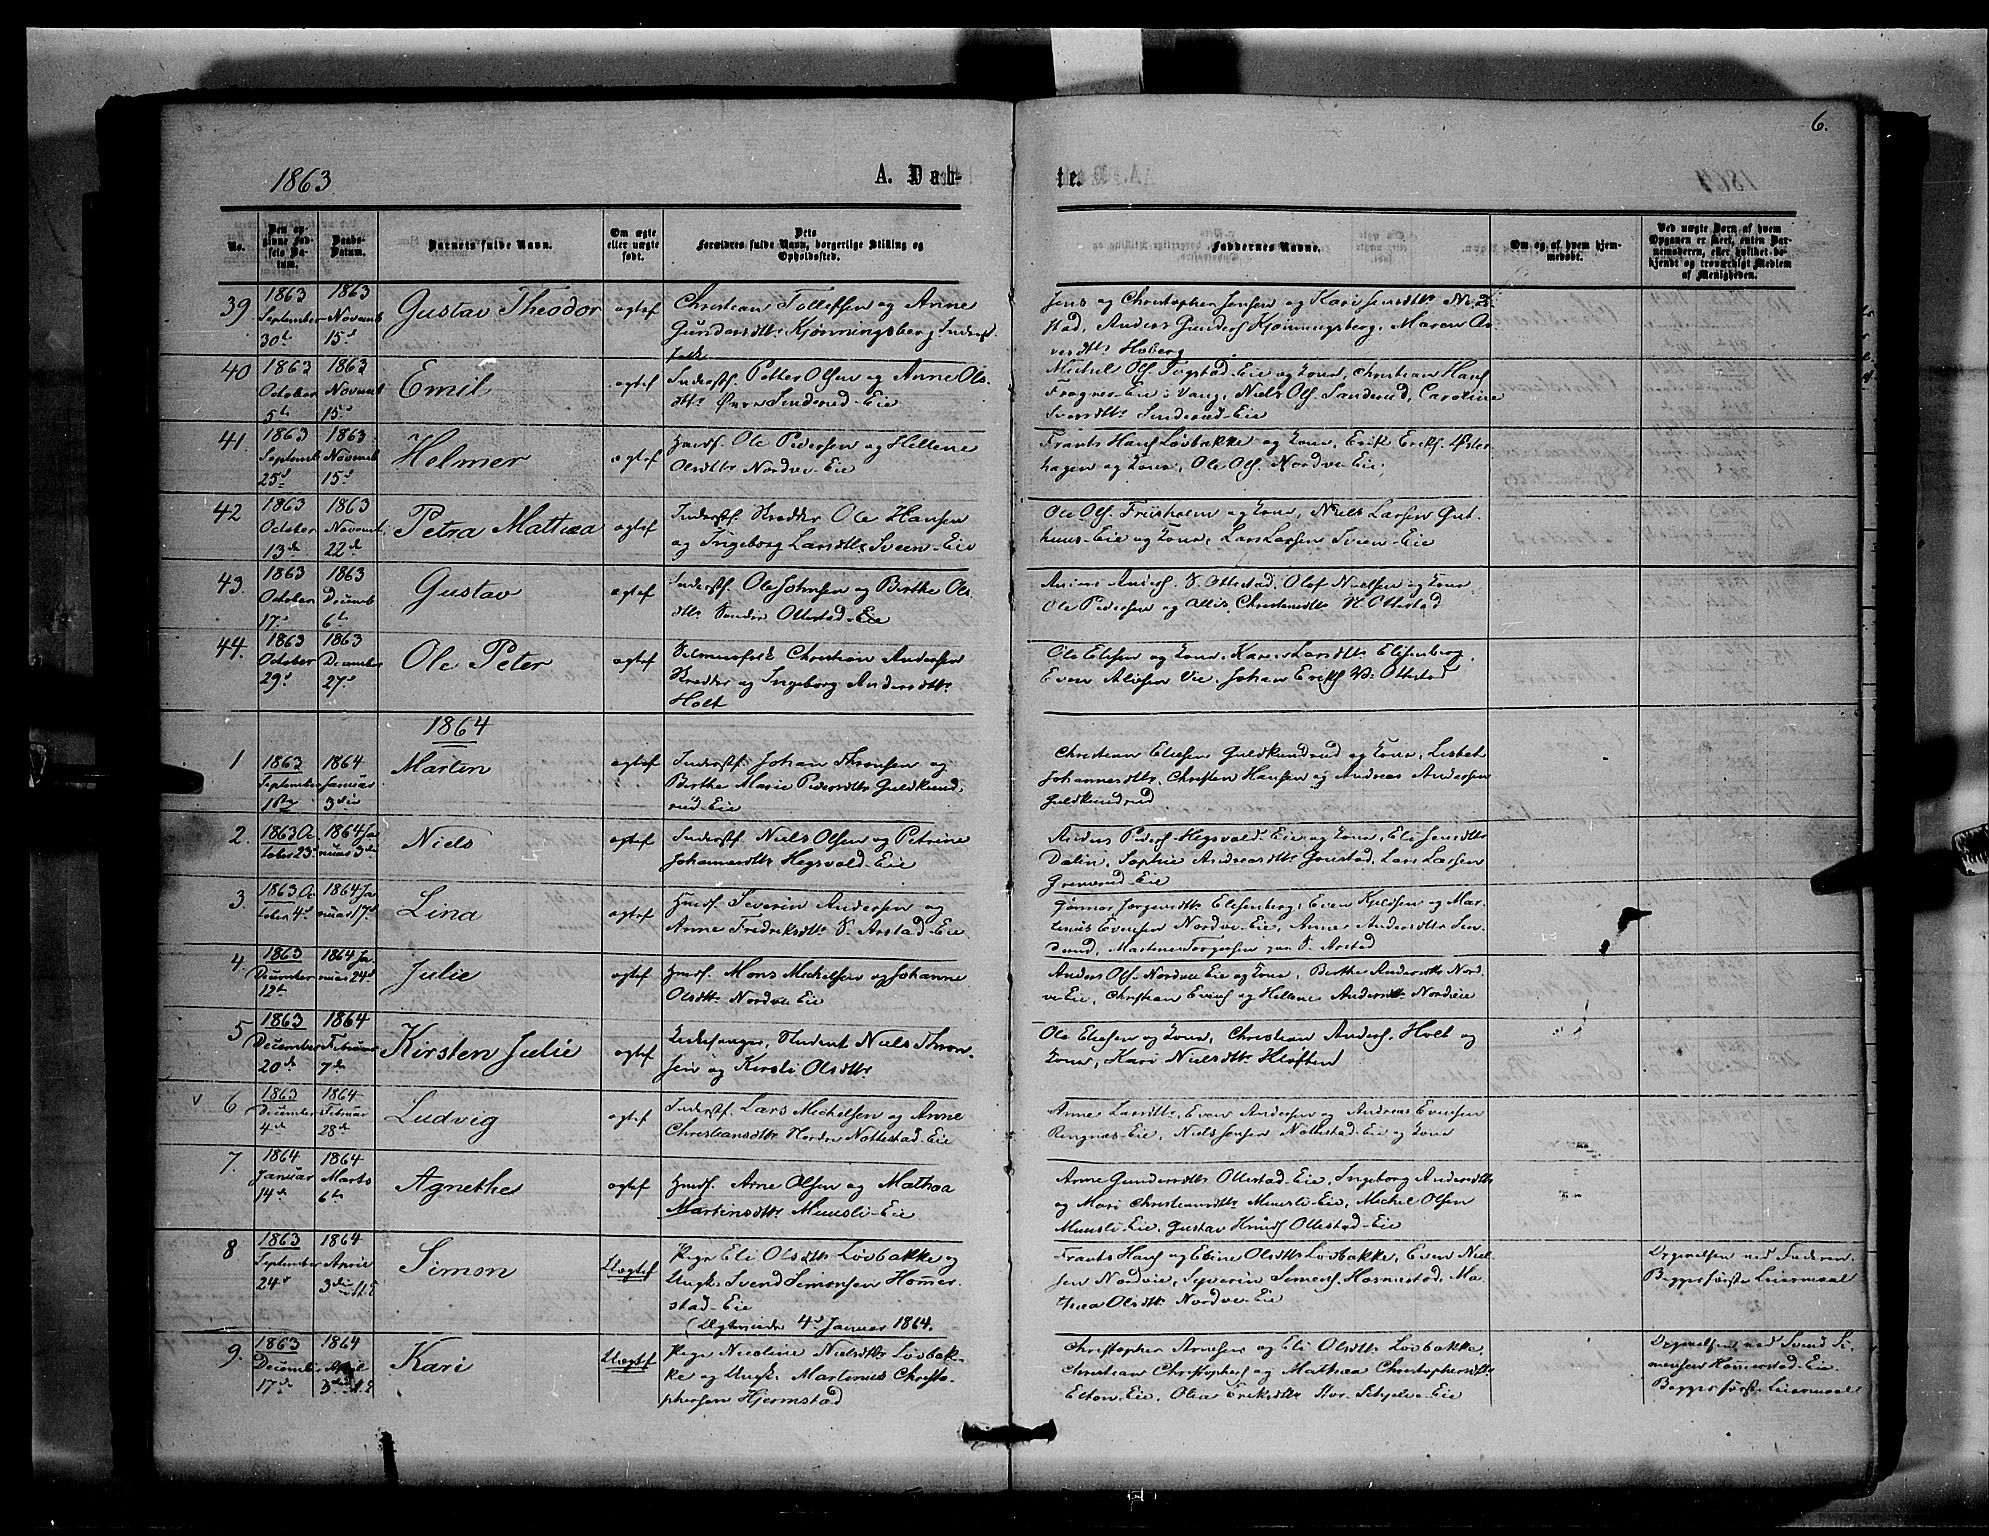 6.
1863
A. Dåb-
te.
No.
Den opgivne Fødsels Datum.
Daabs-Datum.
Barnets fulde Navn.
Om ægte eller uægte født.
Dets Forældres fulde Navn, borgerlige Stilling og Opholdssted.
Faddernes Navne.
Om og af hvem hjemmedøbt.
Ved uægte Børn af hvem Opgaven er skeet, enten Barnemoderen, eller hvilket bekjendt og troværdigt Medlem af Menigheden.
39
1863 September 30te
1863 Novemb 15d
Gustav Theodor
ægtef
Christian Tollefsen og Anne
Gundersdttr Kjønningsberg, Inderst-
folk
Jens og Christopher Jensen og Kari Jensdttr
stad, Anders Gunders Kjønningsberg, Maren
Hoberg
40
1863 October 5te
1863 Novemb 15d
Emil
ægtef
Inderstf. Petter Olsen og Anne Ols-
dttr Øvre Sinderud-Eie
Michel Ols. Togstad-Eie og Kone, Christian Hans
Frogner-Eie i Vang, Niels Ols. Sanderud, Caroline
Sinderud-Eie
41.
1863 Septemb 25d
1863 Novemb 15d
Helmer
ægtef
Huusf. Ole Pedersen og Hellene
Olsdttr Nordvi-Eie
Frants Hans Løvbakke og Kone, Erik Eriks. Øster-
hagen og Kone, Ole Ols. Nordvi-Eie,
42
1863 October 13de
1863 Novemb. 22de
Petra Mathea
ægtef
Inderstf. Skrædder Ole Hansen
og Ingeborg Larsdttr Sveen-Eie
Ole Ols. Friisholm og Kone, Niels Larsen Gut-
huus-Eie og Kone, Lars Larsen Sveen-Eie
43.
1863 October 17d
1863 Decemb 6te
Gustav
ægtef
Inderstf. Ole Johnsen og Birthe Ols-
dttr Søndre Ottestad-Eie
Anders. S. Ottestad, Olof Nielsen og Kone
Ole Pedersen og Christensdttr N. Ottestad
44.
1863 October 29d
1863 December 27d
Ole Peter
ægtef
Selveierfolk Christian Andersen
Skrædder og Ingeborg Andersdttr
Holt
Ole Eliesen og Kone, Karen Larsdttr Elisenberg,
Even Alfsen Vie, Johan Eriks V. Ottestad
1864
1
1863 September 1ste
1864 Januar 3die
Martin
ægtef
Inderstf. Johan Thronsen og
Birthe Marie Pedersdttr Guldkund-
rud-Eie
Christian Eliesen Guldkundrud og Kone, Lisbet
Johannesdttr, Christen Hansen og Andreas Andersen
Guldkundrud
2.
1863 October 23d
1864 Januar 3die
Niels
ægtef
Inderstf. Niels Olsen og Petrine
Johannesdttr Hegsvold-Eie
Anders Peders. Hegsvold Eie og Kone, Eli Jensdttr
Dalin, Sophie Andreasdttr Grustad, Lars Larsen
Grønerud-Eie
3.
1863 October 4d
1864 Januar 17d
Lina
ægtef
Huusf. Severin Andersen og
Anne Fredriksdttr S. Arstad-Eie
Gunnor Jørgensdttr Elisenberg, Even Kjeldsen og Mar-
tinus Evensen Nordvi-Eie, Anne Andersdttr Sin-
derud, Martinus Torgersen paa S. Arstad
4.
1863 December 12te
1864 Januar 24d
Julie
ægtef
Huusf. Mons Michelsen og Johanne
Olsdttr Nordvi Eie
Anders Ols. Nordvi Eie og Kone, Birthe Andersdttr Nord-
vi-Eie, Christian Evens og Hellene Andersdttr Nordvie
5
1863 December 20de
1864 Februar 7de
Kirsten Julie
ægtef
Kirkesanger, Student Niels Thron-
sen og Kirsti Olsdttr
Ole Eliesen og Kone, Christian Anders. Holt og
Kone, Kari Nielsdttr Kløften
v 6
1863 December 4de
1864 Februar 28de
Ludvig
ægtef
Inderstf. Lars Michelsen og Anne
Christiansdttr Nordre Nottestad-Eie
Anne Larsdttr, Even Andersen og Andreas Evensen
Ringnæs-Eie, Niels Jensen Nottestad-Eie og Kone
7.
1864 Januar 14de
1864 Marts 6te
Agnethe
ægtef
Huusf. Arne Olsen og Mathea
Martinsdttr Muusli-Eie
Anne Gundersdttr Ottestad-Eie, Ingeborg Andersdttr
og Mari Christiansdttr Muusli-Eie, Michel Olsen
Muusli-Eie, Gustav Knuds Ottestad-Eie
8
1863 September 24d
1864 April 3die
Simon
Uægtef
Pige Eli Olsdttr Løvbakke og
Ungk. Svend Simonsen Hommer-
stad-Eie
(Ægteviede 4d Januar 1864.
Frants Hans og Eline Olsdttr Løvbakke, Even Niel-
sen Nordvie, Syverin Simens. Hommerstad, Ma-
thea Olsdttr Nordvi-Eie
Opgivelsen ved Faderen.
Begges første Leiermaal
9.
1863 Decemb. 17de
1864 April 3die
Kari
Uægtef
Pige Nicoline Nielsdttr Løvbak-
ke og Ungk. Martinus Christo-
phersen Hjermstad
Christopher Arnesen og Eli Olsdttr Løvbakke,
Christian Christophers og Mathea Christophersdttr
Echon-Eie, Olia Eriksdttr Stor-Schjelve-Eie
Opgivelsen ved Svend Si-
mensen Hommerstad-Eie.
Begges første Leiermaal